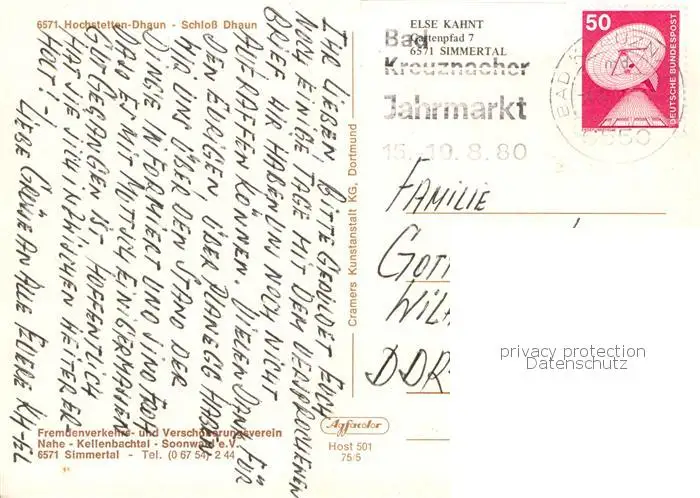 6571 Hochstetten-Dhaun - Schloß Dhaun
IHR LIEBEN, BITTE GEDULDET EUCH
NOCH EINIGE TAGE MIT DEM VERSPROCHENEN
BRIEF. WIR HABEN UNS NOCH NICHT
AUFRAFFEN KÖNNEN. VIELEN DANK FÜR
DEN EURIGEN. ÜBER PLANEGG HABEN
WIR UNS ÜBER DEN STAND DER
DINGE INFORMIERT UND SIND FROH
DASS ES MIT MUTTSCH EINIGERMASSEN
GUTGEGANGEN IST. HOFFENTLICH
HAT SIE SICH INZWISCHEN WEITER ER-
HOLT! -
LIEBE GRÜSSE AN ALLE EUERE KH-EL
Fremdenverkehrs- und Verschönerungsverein
Nahe - Kellenbachtal - Soonwald e.V.
6571 Simmertal - Tel. (0 67 54) 2 44
Cramers Kunstanstalt KG, Dortmund
Agfacolor
Host 501
75/5
ELSE KAHNT
Gartenpfad 7
6571 SIMMERTAL
Bad
Kreuznacher
Jahrmarkt
15.-19.8.80
50
DEUTSCHE BUNDESPOST
BAD KREUZN
6550
FAMILIE
GOTT
WIL
DDR
privacy protection
Datenschutz